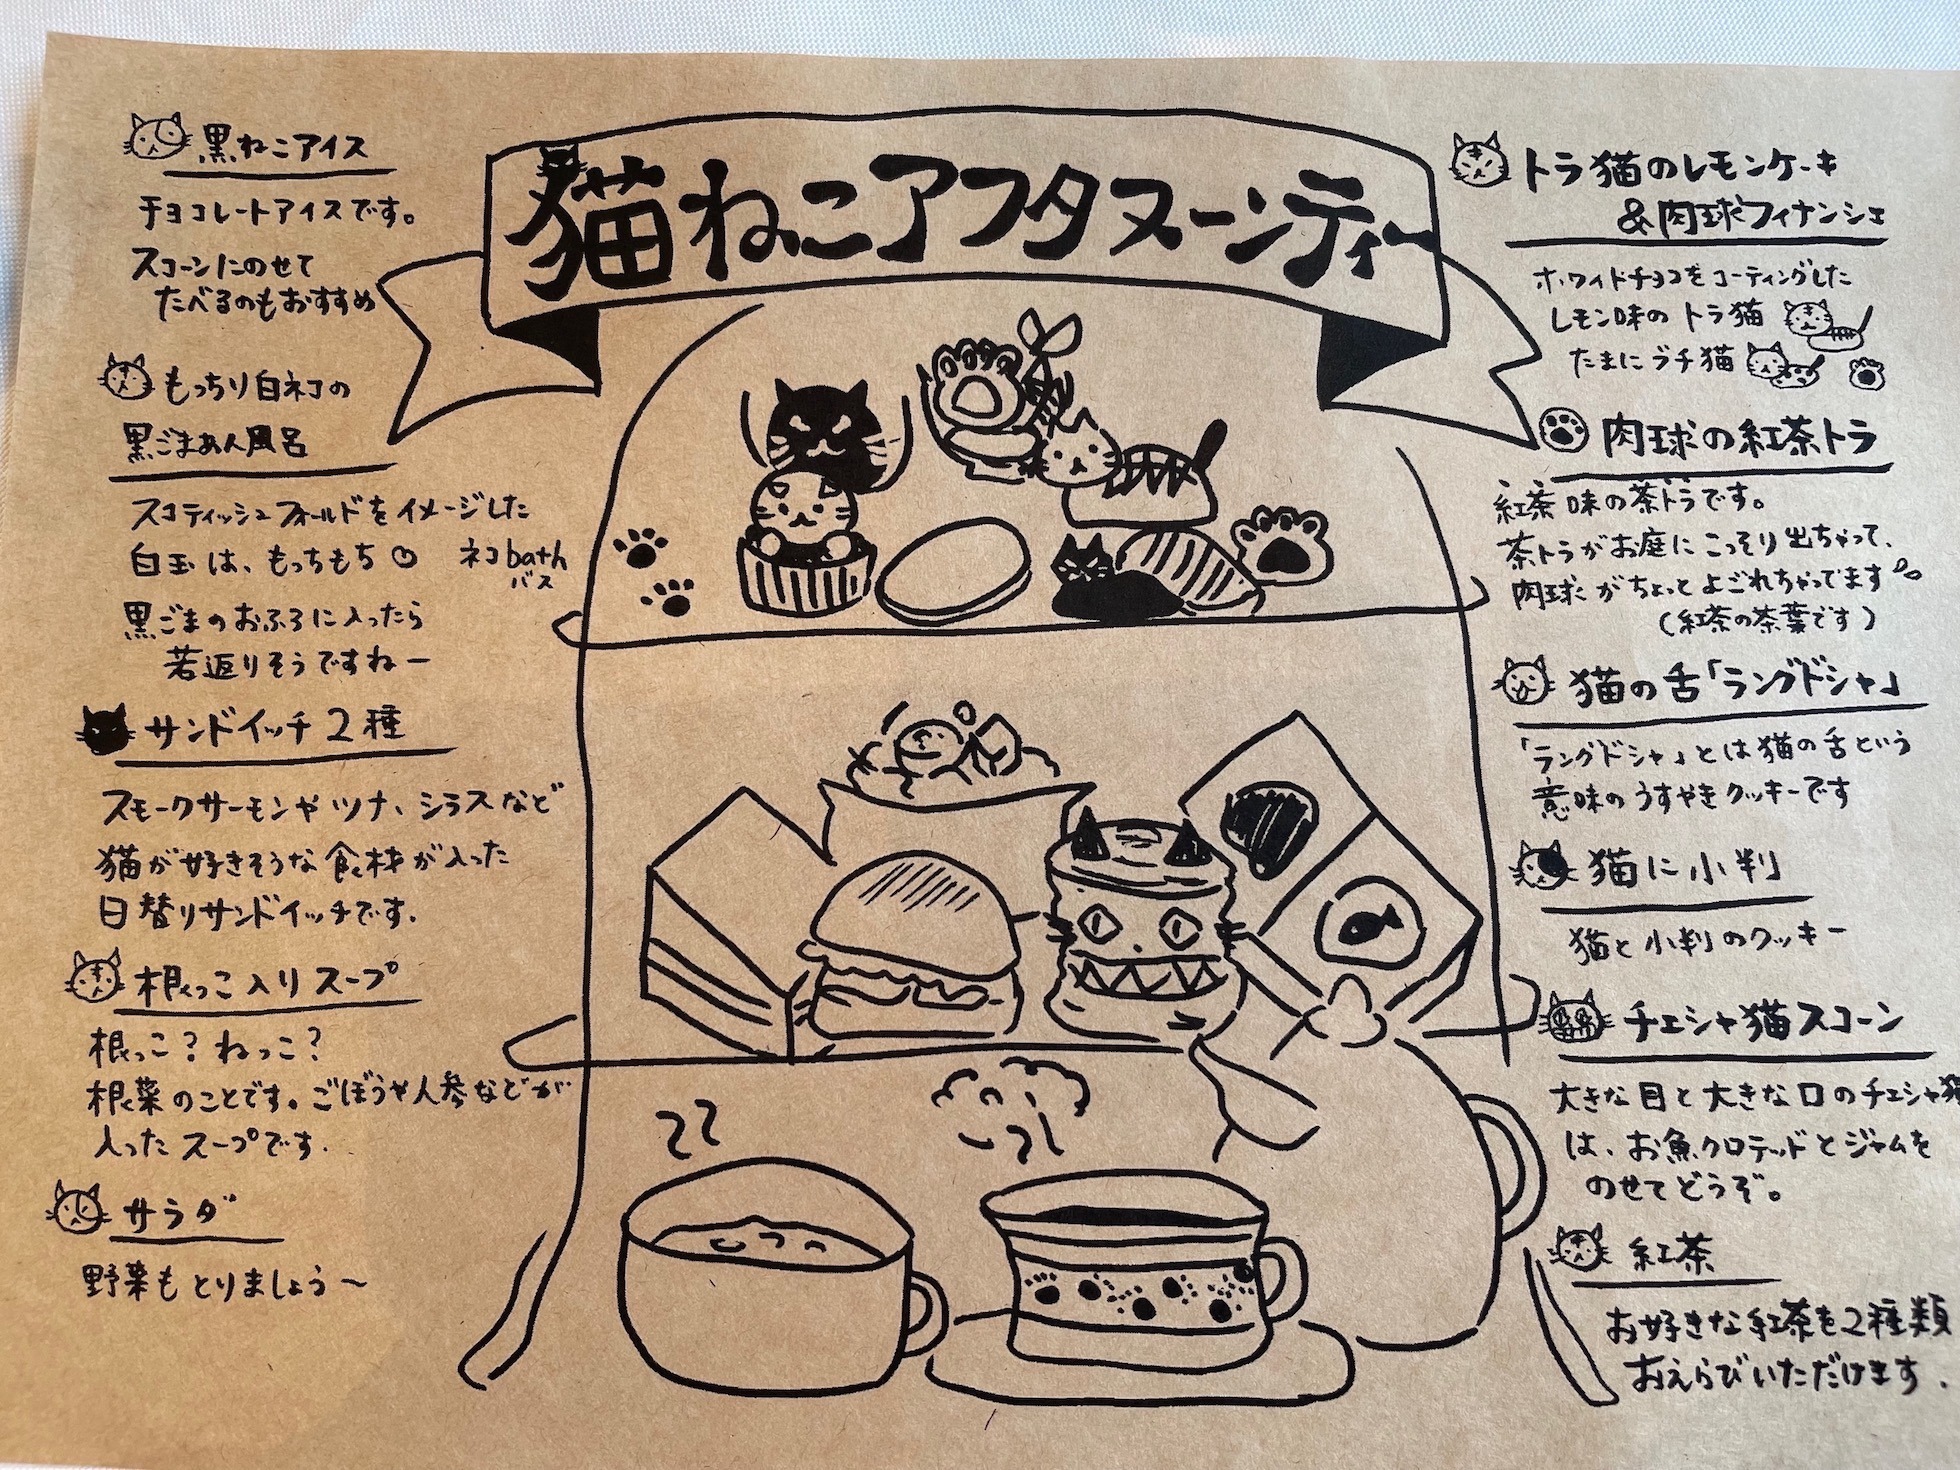 猫ねこアフタヌーンティー
黒ねこアイス
チョコレートアイスです。
スコーンにのせて
たべるのもおすすめ
もっちり白ネコの
黒ごまあん風呂
スコティッシュフォールドをイメージした
白玉は、もっちもち
ネコbath
バス
黒ごまのおふろに入ったら
若返りそうですねー
サンドイッチ2種
スモークサーモンやツナ、シラスなど
猫が好きそうな食材が入った
日替りサンドイッチです.
根っこ入りスープ
根っこ?ねっこ?
根菜のことです。ごぼうや人参などが
入ったスープです.
サラダ
野菜もとりましょう〜
トラ猫のレモンケーキ
&肉球フィナンシェ
ホワイトチョコをコーティングした
レモン味のトラ猫
たまにブチ猫
肉球の紅茶トラ
紅茶味の茶トラです。
茶トラがお庭にこっそり出ちゃって、
肉球がちょっとよごれちゃってます
(紅茶の茶葉です)
猫の舌「ラングドシャ」
「ラングドシャ」とは猫の舌という
意味のうすやきクッキーです
猫に小判
猫と小判のクッキー
チェシャ猫スコーン
大きな目と大きな口のチェシャ猫
は、お魚クロテッドとジャムを
のせてどうぞ。
紅茶
お好きな紅茶を2種類
おえらびいただけます.